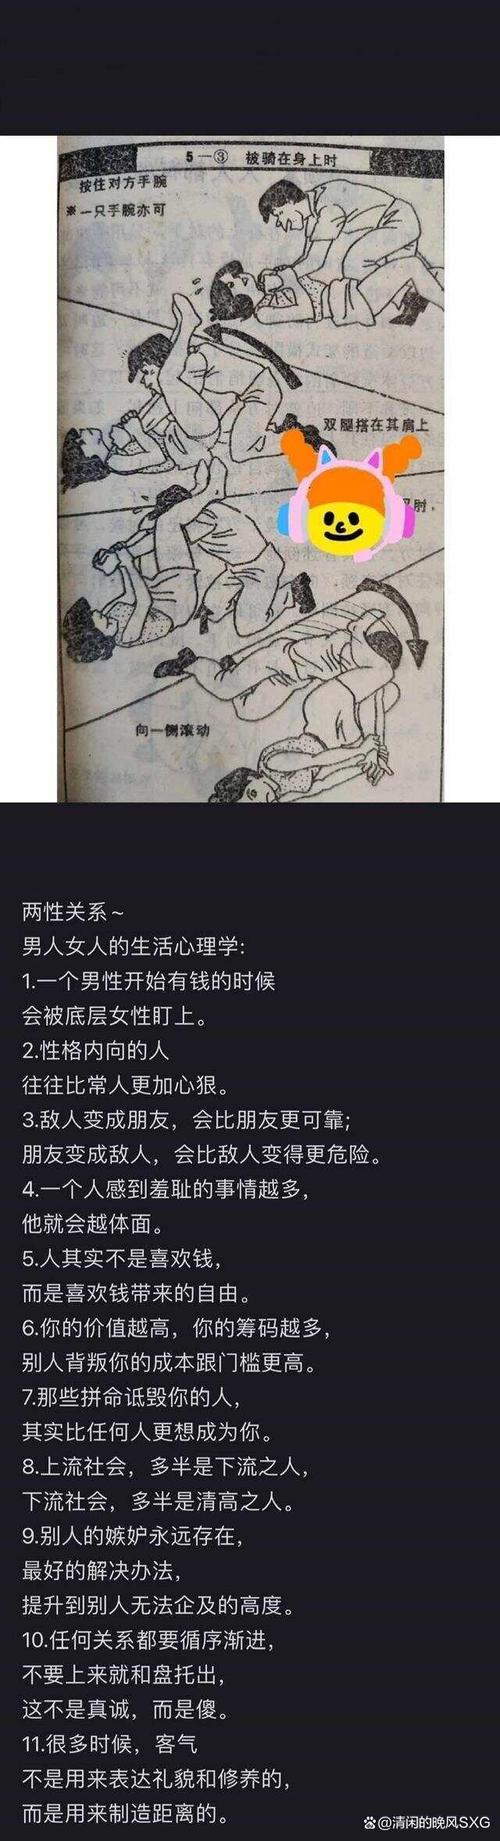 5—③ 被骑在身上时
按住对方手腕
※一只手腕亦可
双腿搭在其肩上
肘，
向一侧滚动
两性关系~
男人女人的生活心理学:
1.一个男性开始有钱的时候
会被底层女性盯上。
2.性格内向的人
往往比常人更加心狠。
3.敌人变成朋友，会比朋友更可靠;
朋友变成敌人，会比敌人变得更危险。
4.一个人感到羞耻的事情越多，
他就会越体面。
5.人其实不是喜欢钱，
而是喜欢钱带来的自由。
6.你的价值越高，你的筹码越多，
别人背叛你的成本跟门槛更高。
7.那些拼命诋毁你的人，
其实比任何人更想成为你。
8.上流社会，多半是下流之人，
下流社会，多半是清高之人。
9.别人的嫉妒永远存在，
最好的解决办法，
提升到别人无法企及的高度。
10.任何关系都要循序渐进，
不要上来就和盘托出，
这不是真诚，而是傻。
11.很多时候，客气
不是用来表达礼貌和修养的，
而是用来制造距离的。
@清闲的晚风SXG